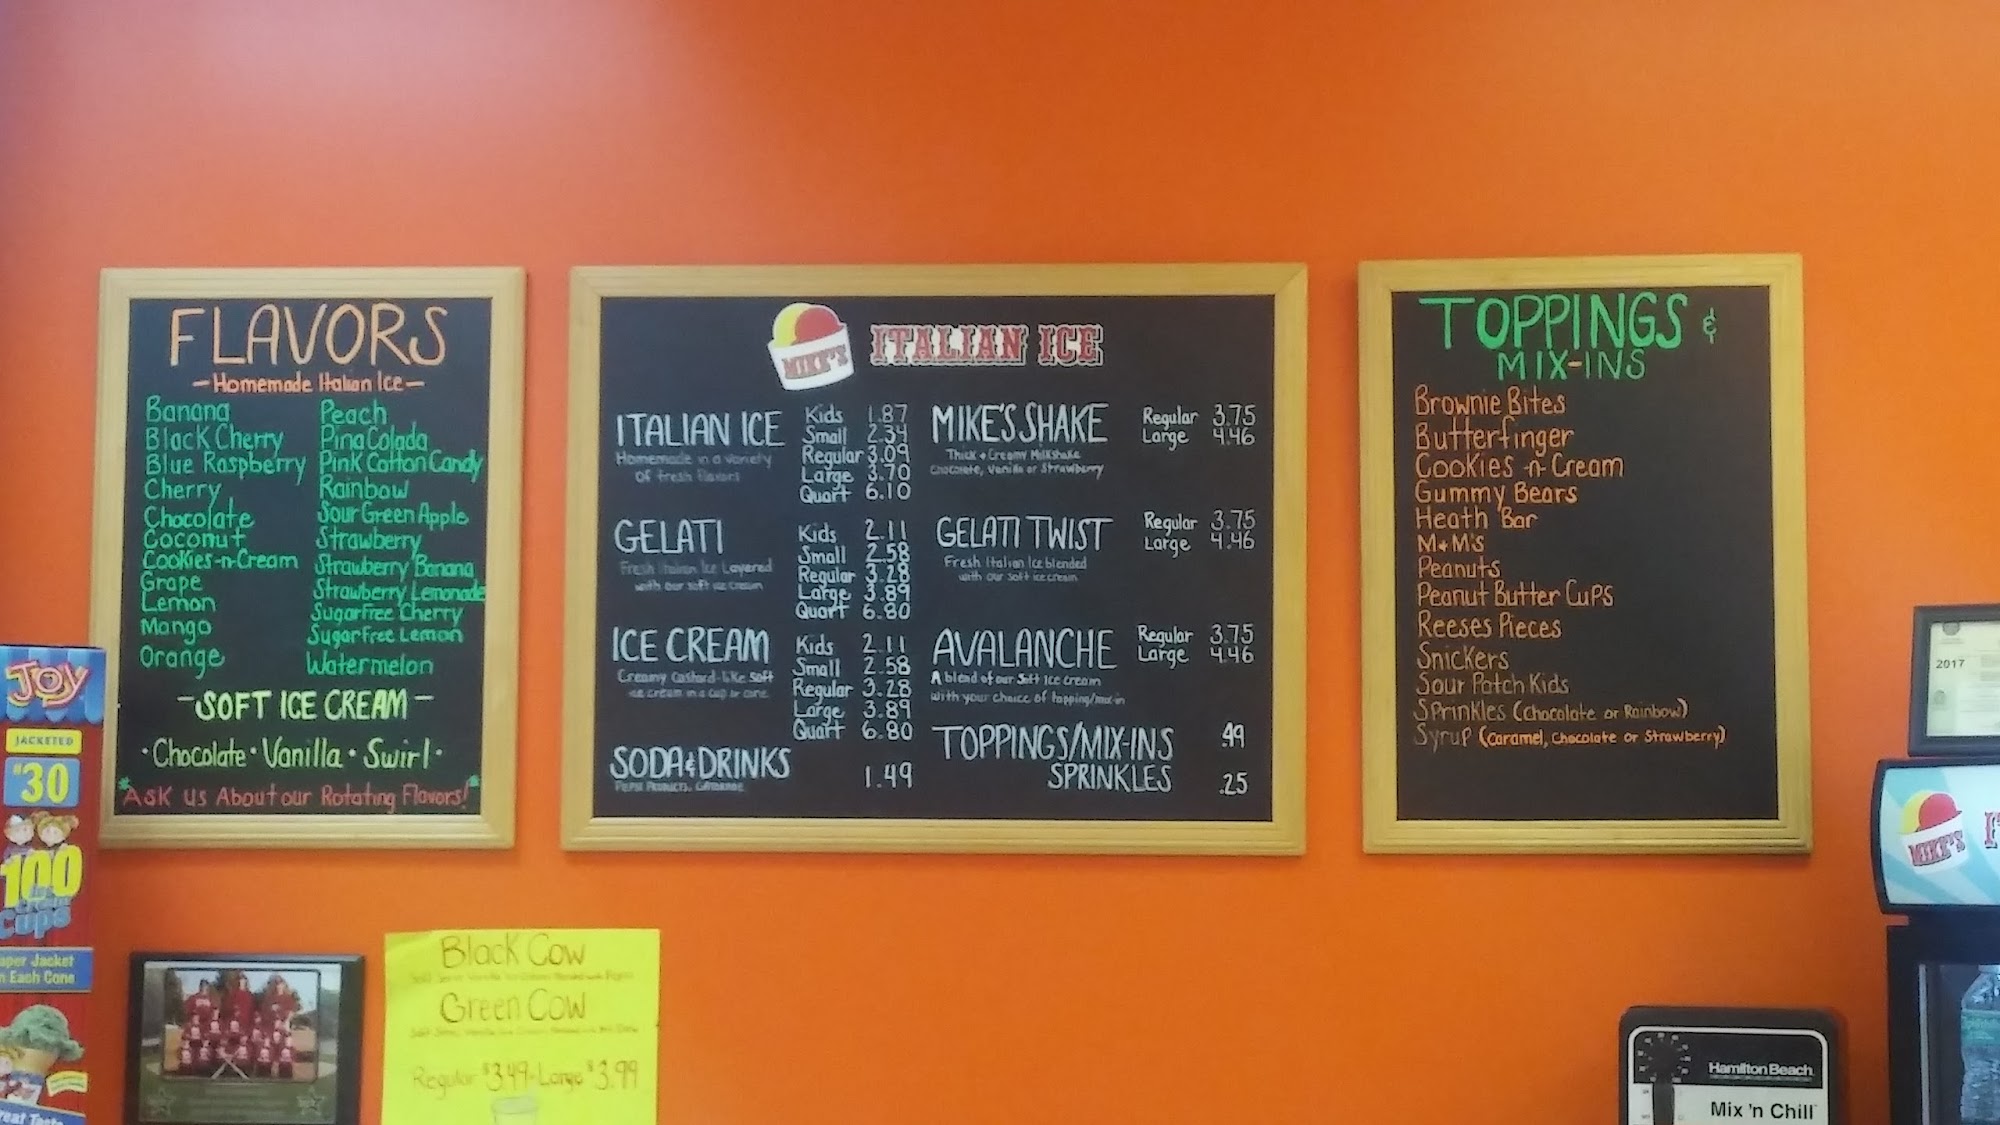 FLAVORS
-Homemade Italian Ice-
Banana
Black Cherry
Blue Raspberry
Cherry
Chocolate
Coconut
Cookies-n-Cream
Grape
Lemon
Mango
Orange
Peach
Pina Colada
Pink Cotton Candy
Rainbow
Sour Green Apple
Strawberry
Strawberry Banana
Strawberry Lemonade
Sugar Free Cherry
Sugar Free Lemon
Watermelon
-SOFT ICE CREAM-
·Chocolate·Vanilla·Swirl·
*Ask Us About our Rotating Flavors!*
MIKE'S ITALIAN ICE
ITALIAN ICE
Homemade in a variety
of fresh flavors
Kids 1.87
Small 2.34
Regular 3.09
Large 3.70
Quart 6.10
GELATI
Fresh Italian Ice Layered
with our soft ice cream
Kids 2.11
Small 2.58
Regular 3.28
Large 3.89
Quart 6.80
ICE CREAM
Creamy Custard-like soft
ice cream in a cup or cone
Kids 2.11
Small 2.58
Regular 3.28
Large 3.89
Quart 6.80
SODA & DRINKS 1.49
PEPSI PRODUCTS, GATORADE
MIKE'S SHAKE
Thick + Creamy Milkshake
Chocolate, Vanilla or Strawberry
Regular 3.75
Large 4.46
GELATI TWIST
Fresh Italian Ice blended
with our soft ice cream
Regular 3.75
Large 4.46
AVALANCHE
A blend of our Soft Ice cream
with your choice of topping/mix-in
Regular 3.75
Large 4.46
TOPPINGS/MIX-INS .49
SPRINKLES .25
TOPPINGS &
MIX-INS
Brownie Bites
Butterfinger
Cookies -n- Cream
Gummy Bears
Heath Bar
M&M'S
Peanuts
Peanut Butter Cups
Reeses Pieces
Snickers
Sour Patch Kids
Sprinkles (Chocolate or Rainbow)
Syrup (Caramel, Chocolate or Strawberry)
JOY
JACKETED
#30
100
Cups
Jacket
Each Cone
Black Cow
Green Cow
Regular $3.49 - Large $3.99
2017
MIKE'S
Hamilton Beach
Mix 'n Chill